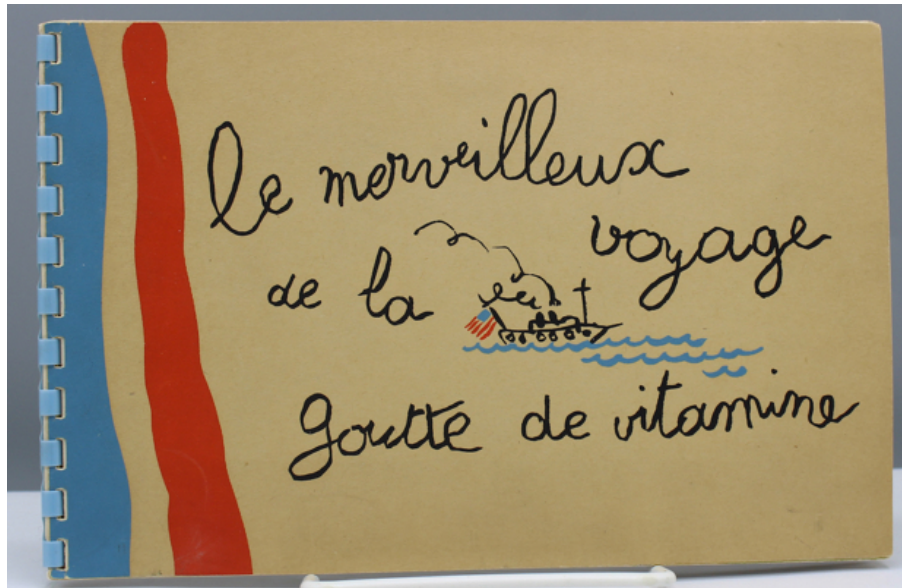 le merveilleux
voyage
de la
goutte de vitamine